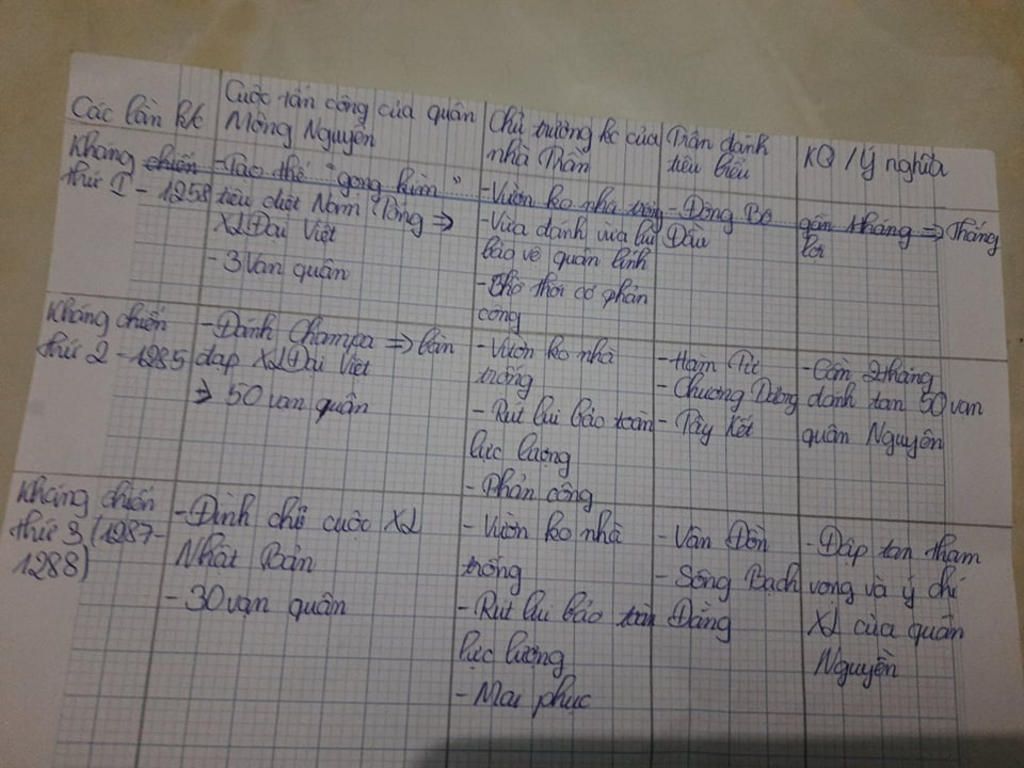 Các lần k/c
Cuộc tấn công của quân
Mông Nguyên
Chủ trương kc của
nhà Trần
Trận đánh
tiêu biểu
KQ / Ý nghĩa
Kháng chiến
thứ I - 1258
- Tạo thế "gọng kìm"
tiêu diệt Nam Tống =>
XL Đại Việt
- 3 vạn quân
- Vườn ko nhà trống
- Vừa đánh vừa lui
bảo vệ quân lính
- Chờ thời cơ phản
công
- Đông Bộ
Đầu
gần tháng => Thắng
lợi
Kháng chiến
thứ 2 - 1285
- Đánh Champa => bàn
đạp XL Đại Việt
=> 50 vạn quân
- Vườn ko nhà
trống
- Rút lui bảo toàn
lực lượng
- Phản công
- Hàm Tử
- Chương Dương
- Tây Kết
- Gồm 2 tháng
đánh tan 50 vạn
quân Nguyên
Kháng chiến
thứ 3 (1287-
1288)
- Đình chỉ cuộc XL
Nhật Bản
- 30 vạn quân
- Vườn ko nhà
trống
- Rút lui bảo toàn
lực lượng
- Mai phục
- Vân Đồn
- Sông Bạch
Đằng
- Đập tan tham
vọng và ý chí
XL của quân
Nguyên